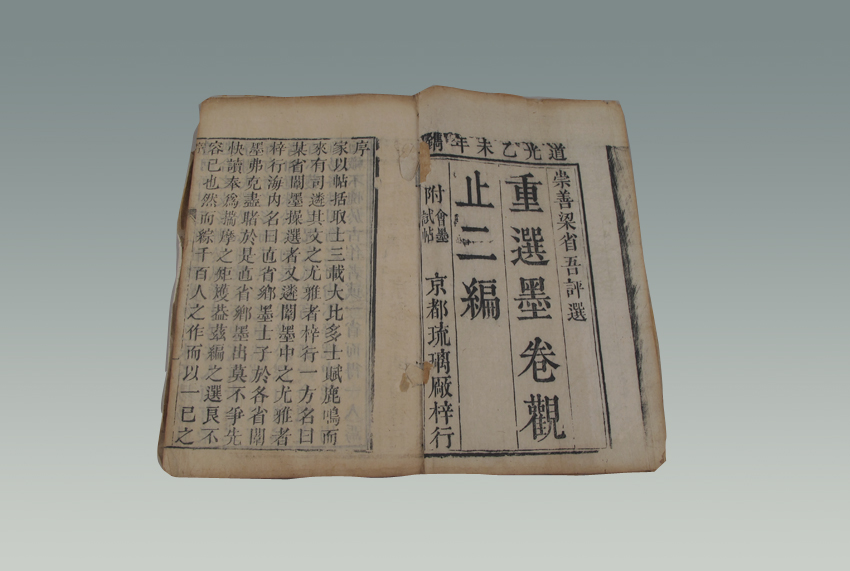 道光乙未年鐫
崇善梁省吾評選
重選墨卷觀
止二編
附會墨試帖
京都琉璃厰梓行
序
家以帖括取士三載大比多士賦鹿鳴而
來有司遴其文之尤雅者梓行一方名曰
某省闈墨操選者又遴闈墨中之尤雅者
梓行海内名曰直省鄉墨士子於各省闈
墨弗克盡睹於是直省鄉墨出莫不爭先
快讀奉爲揣摩之矩矱葢茲編之選良不
容已也然而綜千百人之作而以一已之